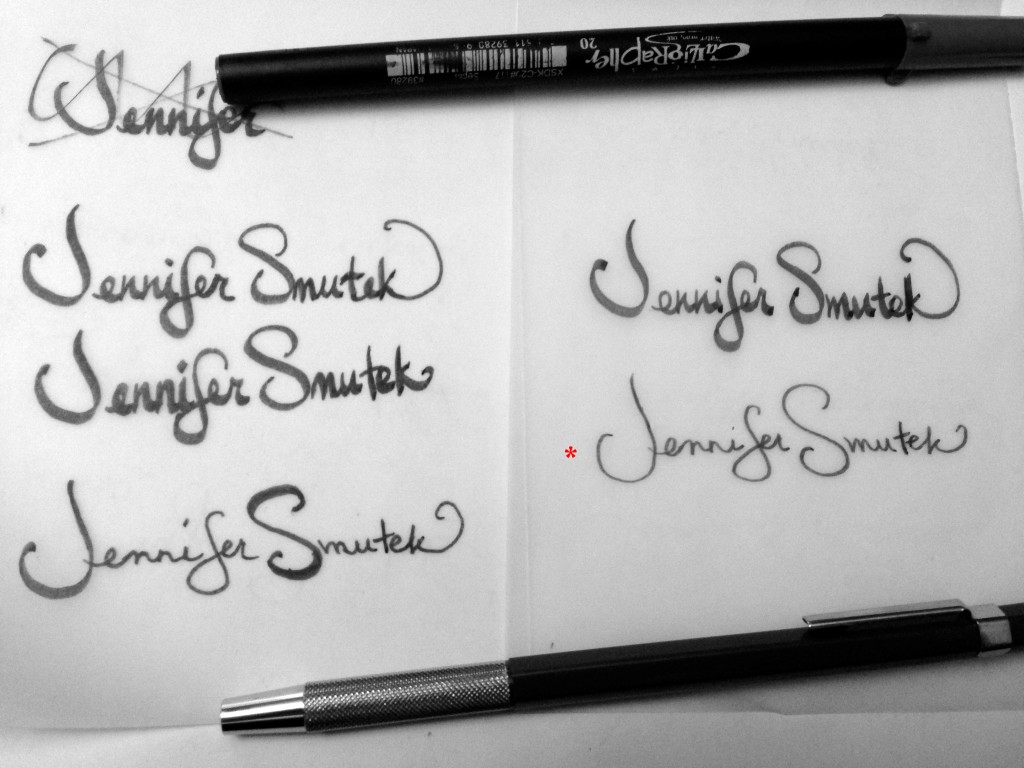 CalligRapHer
20
JAPAN
Jennifer
Jennifer Smutek
Jennifer Smutek
Jennifer Smutek
Jennifer Smutek
* Jennifer Smutek